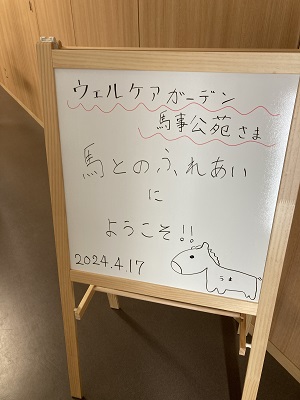 ウェルケアガーデン
馬事公苑さま
馬とのふれあい
に
ようこそ!!
2024.4.17
うま